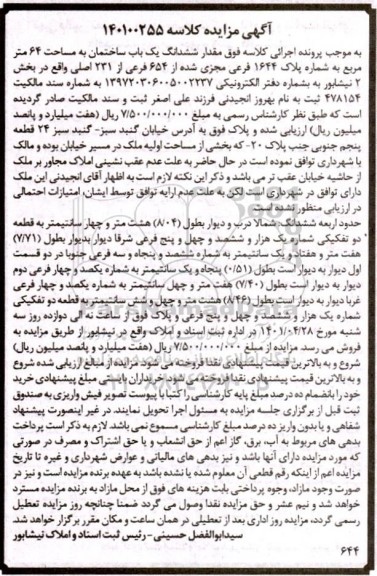 آگهی مزایده کلاسه ۱۴۰۱۰۰۲۵۵
به موجب پرونده اجرائی کلاسه فوق مقدار ششدانگ یک باب ساختمان به مساحت ۶۴ متر
مربع به شماره پلاک ۱۶۴۴ فرعی مجزی شده از ۶۵۴ فرعی از ۲۳۱ اصلی واقع در بخش
۲ نیشابور به شماره دفتر الکترونیکی ۱۳۹۷۲۰۳۰۶۰۰۵۰۰۲۲۳۷ به شماره سند مالکیت
۴۷۸۱۵۴ ثبت به نام بهروز انجیدنی فرزند علی اصغر ثبت و سند مالکیت صادر گردیده
است که طبق نظر کارشناس رسمی به مبلغ ۷/۵۰۰/۰۰۰/۰۰۰ ریال (هفت میلیارد و پانصد
میلیون ریال) ارزیابی شده و پلاک فوق به آدرس خیابان گنبد سبز- گنبد سبز ۲۴ قطعه
پنجم جنوبی جنب پلاک ۲۰- که بخشی از مساحت اولیه ملک در مسیر خیابان بوده و مالک
با شهرداری توافق نموده است در حال حاضر به علت عدم عقب نشینی املاک مجاور بر ملک
از حاشیه خیابان عقب تر می باشد و ذکر این نکته لازم است به اظهار آقای انجیدنی این ملک
دارای توافق در شهرداری است لکن به علت عدم ارایه توافق توسط ایشان، امتیازات احتمالی
در ارزیابی منظور نشده است
حدود اربعه ششدانگ: شمالا درب و دیوار بطول (۸/۰۴) هشت متر و چهار سانتیمتر به قطعه
دو تفکیکی شماره یک هزار و ششصد و چهل و پنج فرعی شرقا دیوار بدیوار بطول (۷/۷۱)
هفت متر و هفتاد و یک سانتیمتر به شماره ششصد و پنجاه و سه فرعی جنوبا در دو قسمت
اول دیوار به دیوار است بطول (۰/۵۱) پنجاه و یک سانتیمتر به شماره یکصد و چهار فرعی دوم
دیوار به دیوار است بطول (۷/۴۰) هفت متر و چهل سانتیمتر به شماره یکصد و چهار فرعی
غربا دیوار به دیوار است بطول (۸/۴۶) هشت متر و چهل و شش سانتیمتر به قطعه دو تفکیکی
شماره یک هزار و ششصد و چهل و پنج فرعی و پلاک فوق از ساعت نه الی دوازده روز سه
شنبه مورخ ۱۴۰۱/۰۴/۲۸ در اداره ثبت اسناد و املاک واقع در نیشابور از طریق مزایده به
فروش می رسد. مزایده از مبلغ ۷/۵۰۰/۰۰۰/۰۰۰ ریال (هفت میلیارد و پانصد میلیون ریال)
شروع و به بالاترین قیمت پیشنهادی نقدا فروخته می شود. مزایده از مبالغ ارزیابی شده شروع
و به بالاترین قیمت پیشنهادی نقدا فروخته می شود. خریداران بایستی مبلغ پیشنهادی خرید
خود را بانضمام ده درصد مبلغ پایه کارشناسی را کتبا با پیوست تصویر فیش واریزی به صندوق
ثبت قبل از برگزاری جلسه مزایده به مسئول اجرا تحویل نمایند. در غیر اینصورت پیشنهاد
شفاهی و یا بدون واریز ده درصد مبلغ کارشناسی مسموع نمی باشد. لازم به ذکر است پرداخت
بدهی های مربوط به آب، برق، گاز اعم از حق انشعاب و یا حق اشتراک و مصرف در صورتی
که مورد مزایده دارای آنها باشد و نیز بدهی های مالیاتی و عوارض شهرداری و غیره تا تاریخ
مزایده اعم از اینکه رقم قطعی آن معلوم شده یا نشده باشد به عهده برنده مزایده است و نیز در
صورت وجود مازاد، وجوه پرداختی بابت هزینه های فوق از محل مازاد به برنده مزایده مسترد
خواهد شد و نیم عشر و حق مزایده نقدا وصول می گردد ضمنا چنانچه روز مزایده تعطیل
رسمی گردد، مزایده روز اداری بعد از تعطیلی در همان ساعت و مکان مقرر برگزار خواهد شد.
سیدابوالفضل حسینی - رئیس ثبت اسناد و املاک نیشابور
۶۴۴